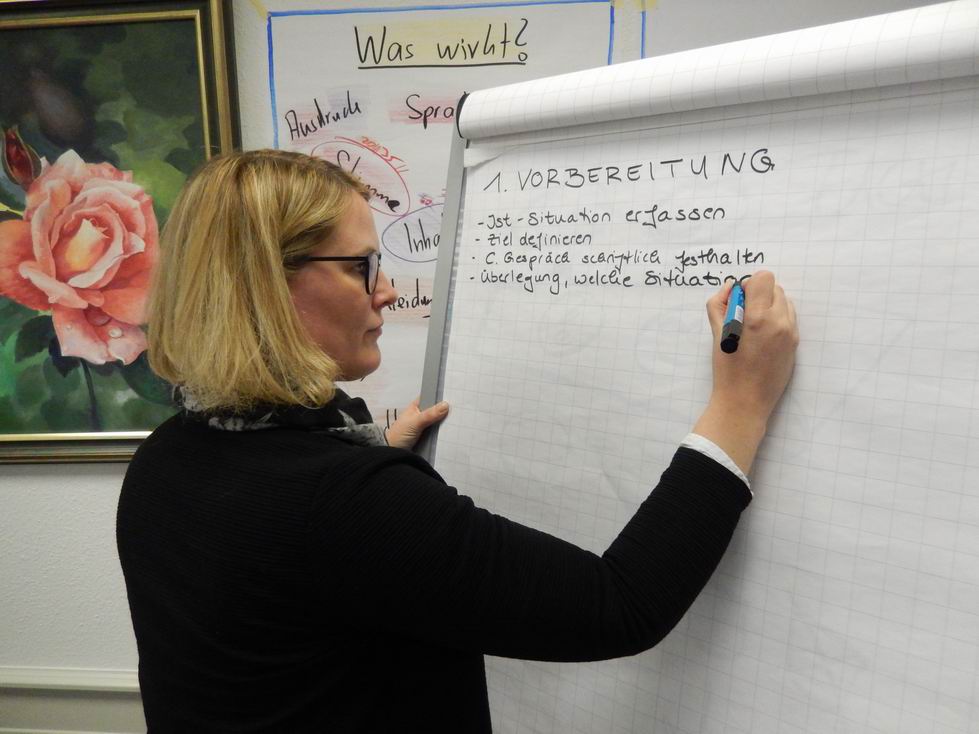 Was wirkt?
Ausdruck
Spra
Stimme
Inha
leidun
1. VORBEREITUNG
- Ist-Situation erfassen
- Ziel definieren
- C. Gespräch schriftlich festhalten
- Überlegung, welche Situation